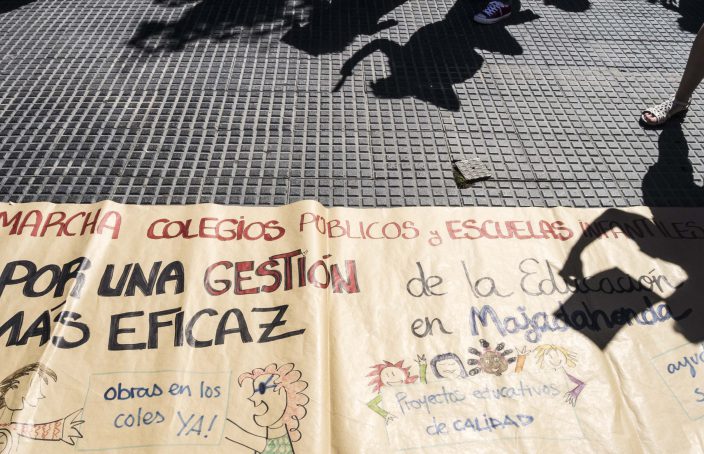 MARCHA COLEGIOS PÚBLICOS y ESCUELAS INFANTILES
POR UNA GESTIÓN
MÁS EFICAZ
de la Educación
en Majadahonda
obras en los
coles YA!
Proyectos educativos
de CALIDAD